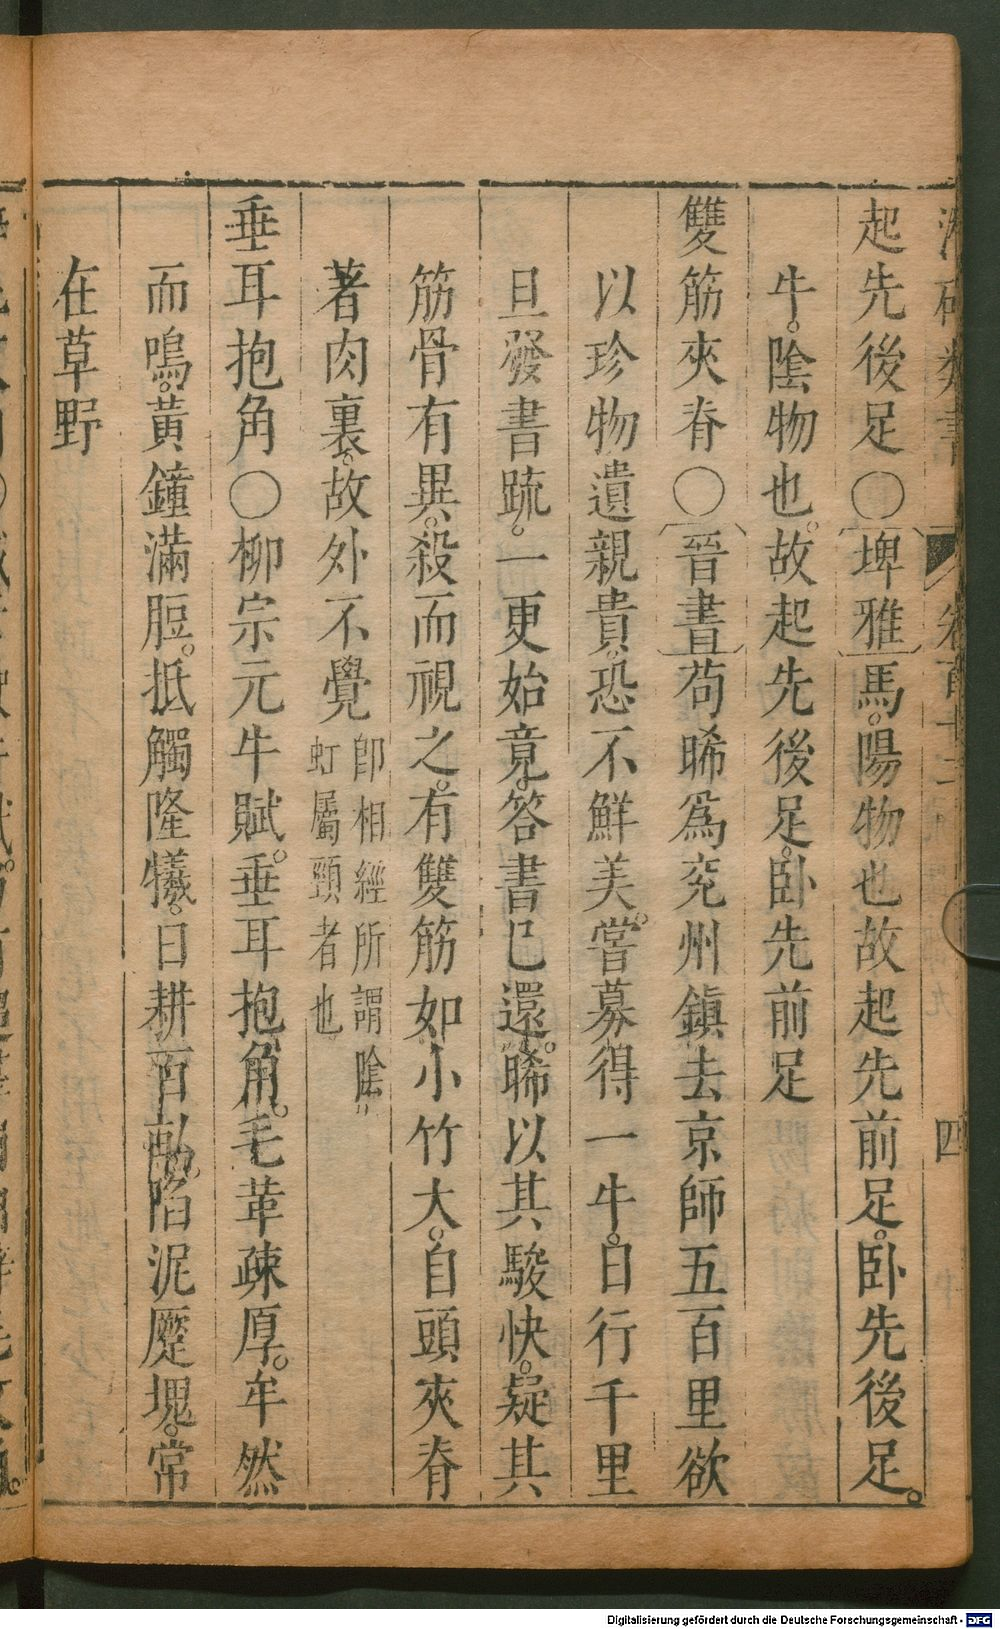 起先後足〇埤雅馬。陽物也故起先前足。臥先後足。
牛。陰物也。故起先後足。臥先前足
雙筋夾脊〇晉書苟晞爲兖州鎭去京師五百里欲
以珍物遺親貴。恐不鮮美。嘗募得一牛。日行千里
旦發書䟽。一更始竟。答書巳還。晞以其駿快。疑其
筋骨有異。殺而視之。有雙筋如小竹大。自頭夾脊
著肉裏。故外不覺卽相經所謂陰
虹屬頸者也
垂耳抱角〇柳宗元牛賦。垂耳抱角。毛革疎厚。牟然
而鳴。黃鐘滿脰。抵觸隆犧。日耕百畝。陷泥蹷塊。常
在草野
類書
四
Digitalisierung gefördert durch die Deutsche Forschungsgemeinschaft - DFG